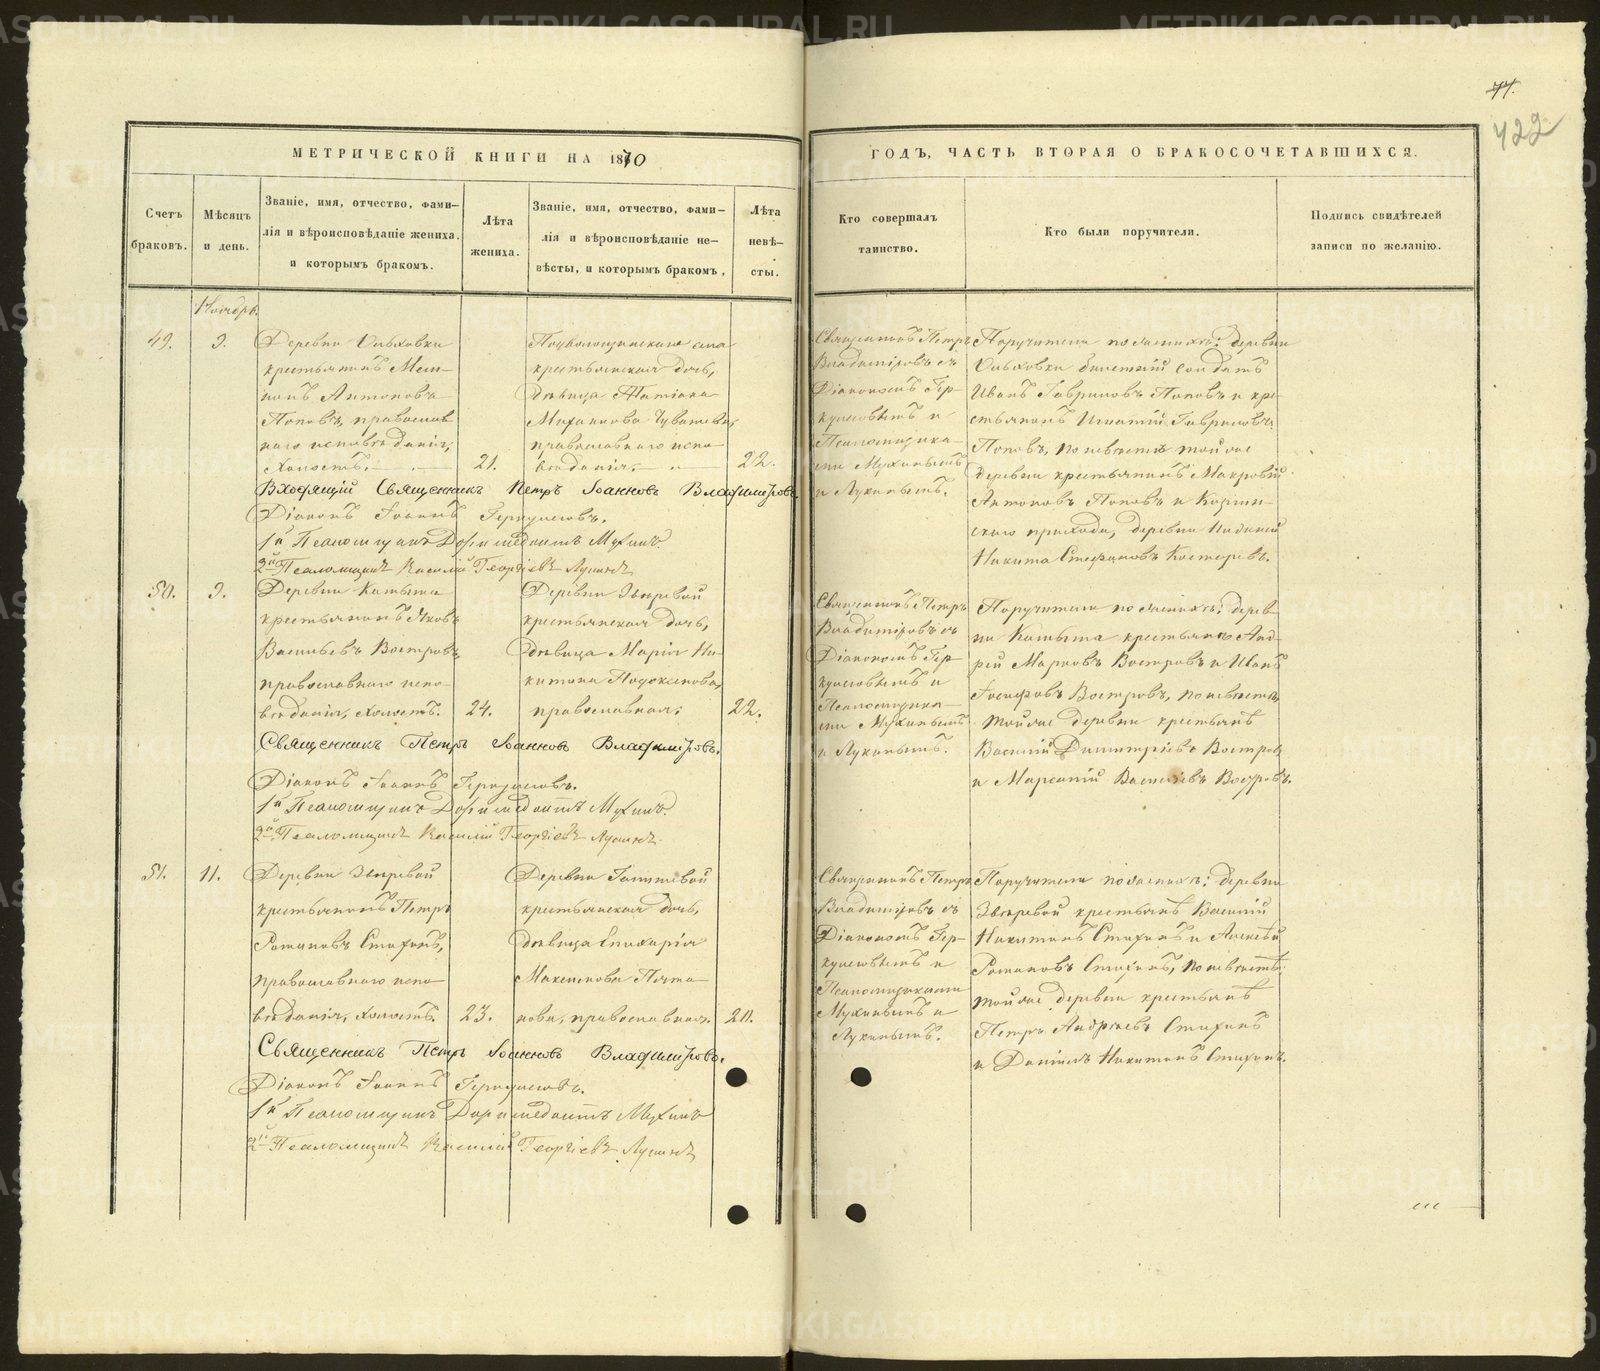 77.
422
МЕТРИЧЕСКОЙ КНИГИ НА 1870
ГОДЪ, ЧАСТЬ ВТОРАЯ О БРАКОСОЧЕТАВШИХСЯ.
Счетъ
браковъ.
Мѣсяцъ
и день.
Званіе, имя, отчество, фами–
лія и вѣроисповѣданіе жениха.
и которымъ бракомъ.
Лѣта
жениха.
Званіе, имя, отчество, фами–
лія и вѣроисповѣданіе не–
вѣсты, и которымъ бракомъ.
Лѣта
невѣ–
сты.
Кто совершалъ
таинство.
Кто были поручители.
Подпись свидѣтелей
записи по желанію.
Ноябрь.
49.
9.
Деревни Ольховки
крестьянинъ
Антоновъ
Поповъ, православ
наго исповѣданія,
холостъ.
21.
села
крестьянская дочь,
дѣвица Татіана
православнаго испо
вѣданія.
22.
Священникъ Петръ
Владиміровъ съ
Діакономъ Гер–
кулесовымъ и
Псаломщика–
ми Мухинымъ
и Лукинымъ.
Поручители по женихѣ: деревни
Ольховки билетный солдатъ
Иванъ Гавриловъ Поповъ и кре
стьянинъ Игнатій Гавриловъ
Поповъ, по невѣстѣ той же
деревни крестьянинъ
Антоновъ Поповъ и
скаго прихода, деревни
Никита Стефановъ Костаревъ.
Входящій Священникъ Петръ Іоанновъ Владиміровъ.
Діаконъ Іоаннъ Геркулесовъ.
1й Псаломщикъ Доримедонтъ Мухинъ.
2й Псаломщикъ Василій Георгіевъ Лукинъ
50.
9.
Деревни Камыша
крестьянинъ Яковъ
Васильевъ Востровъ
православнаго испо–
вѣданія, холостъ.
24.
Деревни Звѣревой
крестьянская дочь,
дѣвица Марія Ни–
китина
православная.
22.
Священникъ Петръ
Владиміровъ съ
Діакономъ Гер–
кулесовымъ и
Псаломщика–
ми Мухинымъ
и Лукинымъ.
Поручители по женихѣ: дерев
ни Камыша крестьяне Анд–
рей Марковъ Востровъ и Иванъ
Іосифовъ Востровъ, по невѣстѣ,
той же деревни крестьяне
Василій Димитріевъ Востровъ
и Васильевъ Востровъ.
Священникъ Петръ Іоанновъ Владиміровъ.
Діаконъ Іоаннъ Геркулесовъ.
1й Псаломщикъ Доримедонтъ Мухинъ.
2й Псаломщикъ Василій Георгіевъ Лукинъ
51.
11.
Деревни Звѣревой
крестьянинъ Петръ
Романовъ
православнаго испо–
вѣданія, холостъ.
23.
Деревни
крестьянская дочь,
дѣвица Епихарія
Максимова Плата–
нова, православная.
20.
Священникъ Петръ
Владиміровъ съ
Діакономъ Гер–
кулесовымъ и
Псаломщиками
Мухинымъ и
Лукинымъ.
Поручители по женихѣ: деревни
Звѣревой крестьяне Василій
Никитинъ и Алексѣй
Романовъ по невѣстѣ
той же деревни крестьяне
Петръ Андреевъ
и Даніилъ Никитинъ
Священникъ Петръ Іоанновъ Владиміровъ.
Діаконъ Іоаннъ Геркулесовъ.
1й Псаломщикъ Доримедонтъ Мухинъ
2й Псаломщикъ Василій Георгіевъ Лукинъ
METRIKI.GASO-URAL.RU